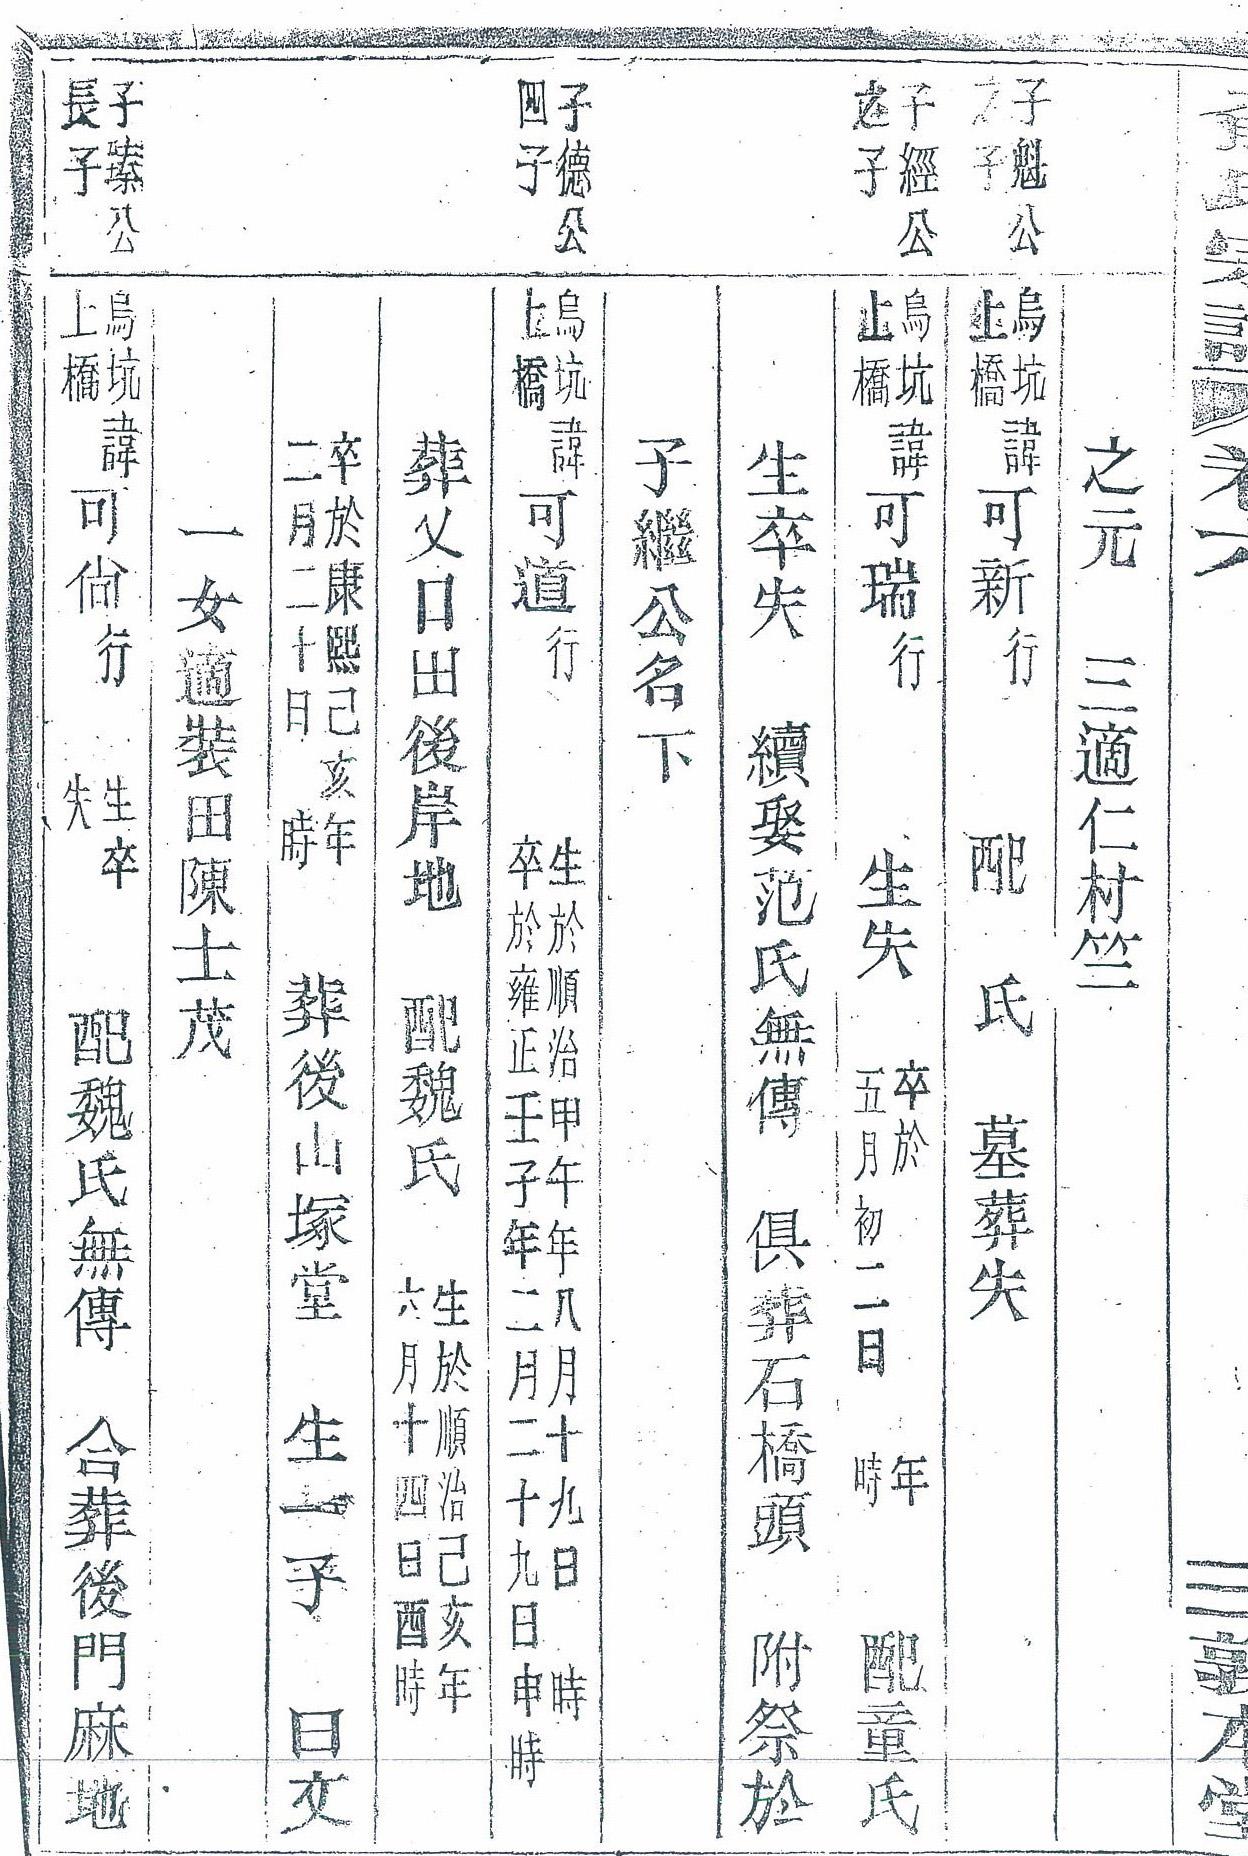 卷六
三 敦本堂
之元 三適仁村竺
子魁公
之子
烏坑
上橋
諱可新行 配 氏 墓葬失
子經公
之子
烏坑
上橋
諱可瑞行 生失 卒於 年
五月初二日 時
配童氏
生卒失 續娶范氏無傳 俱葬石橋頭 附祭於
子繼公名下
子德公
四子
烏坑
上橋
諱可道行 生於順治甲午年八月十九日 時
卒於雍正壬子年二月二十九日申時
葬乂口出後岸地 配魏氏 生於順治己亥年
六月十四日酉時
卒於康熙己亥年
二月二十日 時
葬後山塚堂 生一子 曰文
一女適裝田陳士茂
子瑧公
長子
烏坑
上橋
諱可尙行 生卒
失
配魏氏無傳 合葬後門麻地